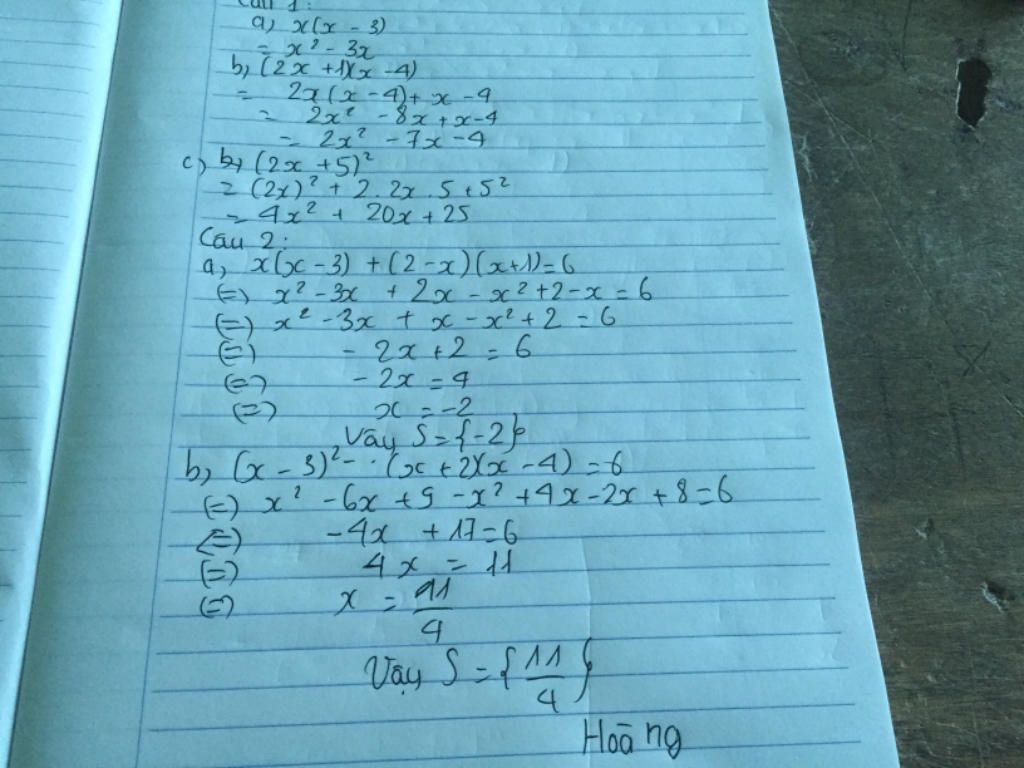 Câu 1:
a, x(x - 3)
= x² - 3x
b, (2x + 1)(x - 4)
= 2x(x - 4) + x - 4
= 2x² - 8x + x - 4
= 2x² - 7x - 4
c, b, (2x + 5)²
= (2x)² + 2.2x.5 + 5²
= 4x² + 20x + 25
Câu 2:
a, x(x - 3) + (2 - x)(x + 1) = 6
(=) x² - 3x + 2x - x² + 2 - x = 6
(=) x² - 3x + x - x² + 2 = 6
(=) - 2x + 2 = 6
(=) - 2x = 4
(=) x = -2
Vậy S = {-2}
b, (x - 3)² - (x + 2)(x - 4) = 6
(=) x² - 6x + 9 - x² + 4x - 2x + 8 = 6
<=) - 4x + 17 = 6
(=) 4x = 11
(=) x = 11/4
Vậy S = {11/4}
Hoàng